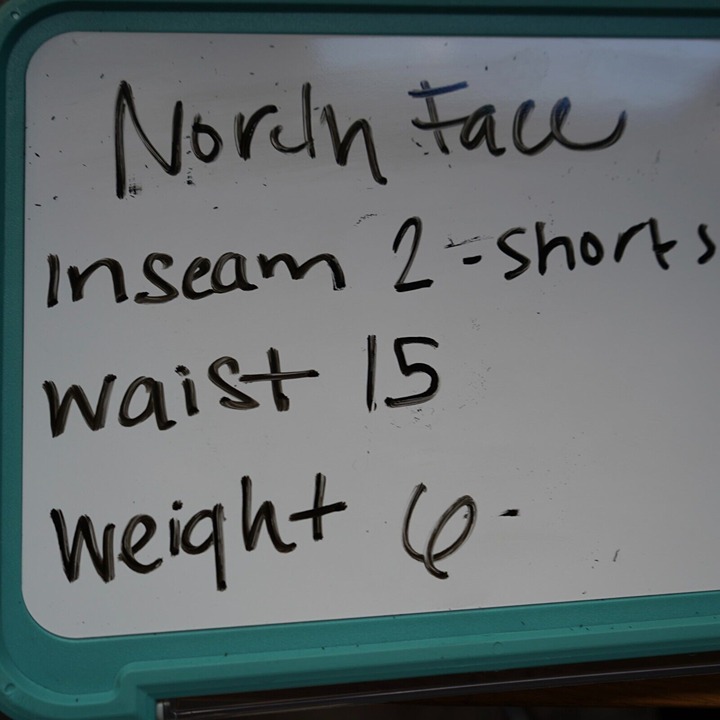 North Face
Inseam 2-shorts
Waist 15
Weight 6-